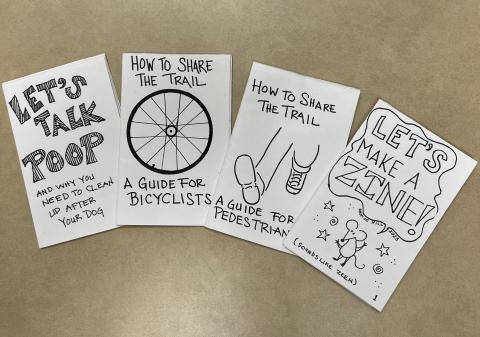 LET'S
TALK
POOP
AND WHY YOU
NEED TO CLEAN
UP AFTER
YOUR DOG
HOW TO SHARE
THE TRAIL
A GUIDE FOR
BICYCLISTS
HOW TO SHARE
THE TRAIL
A GUIDE FOR
PEDESTRIAN
LET'S
MAKE A
ZINE!
(SOUNDS LIKE ZEEN)
1